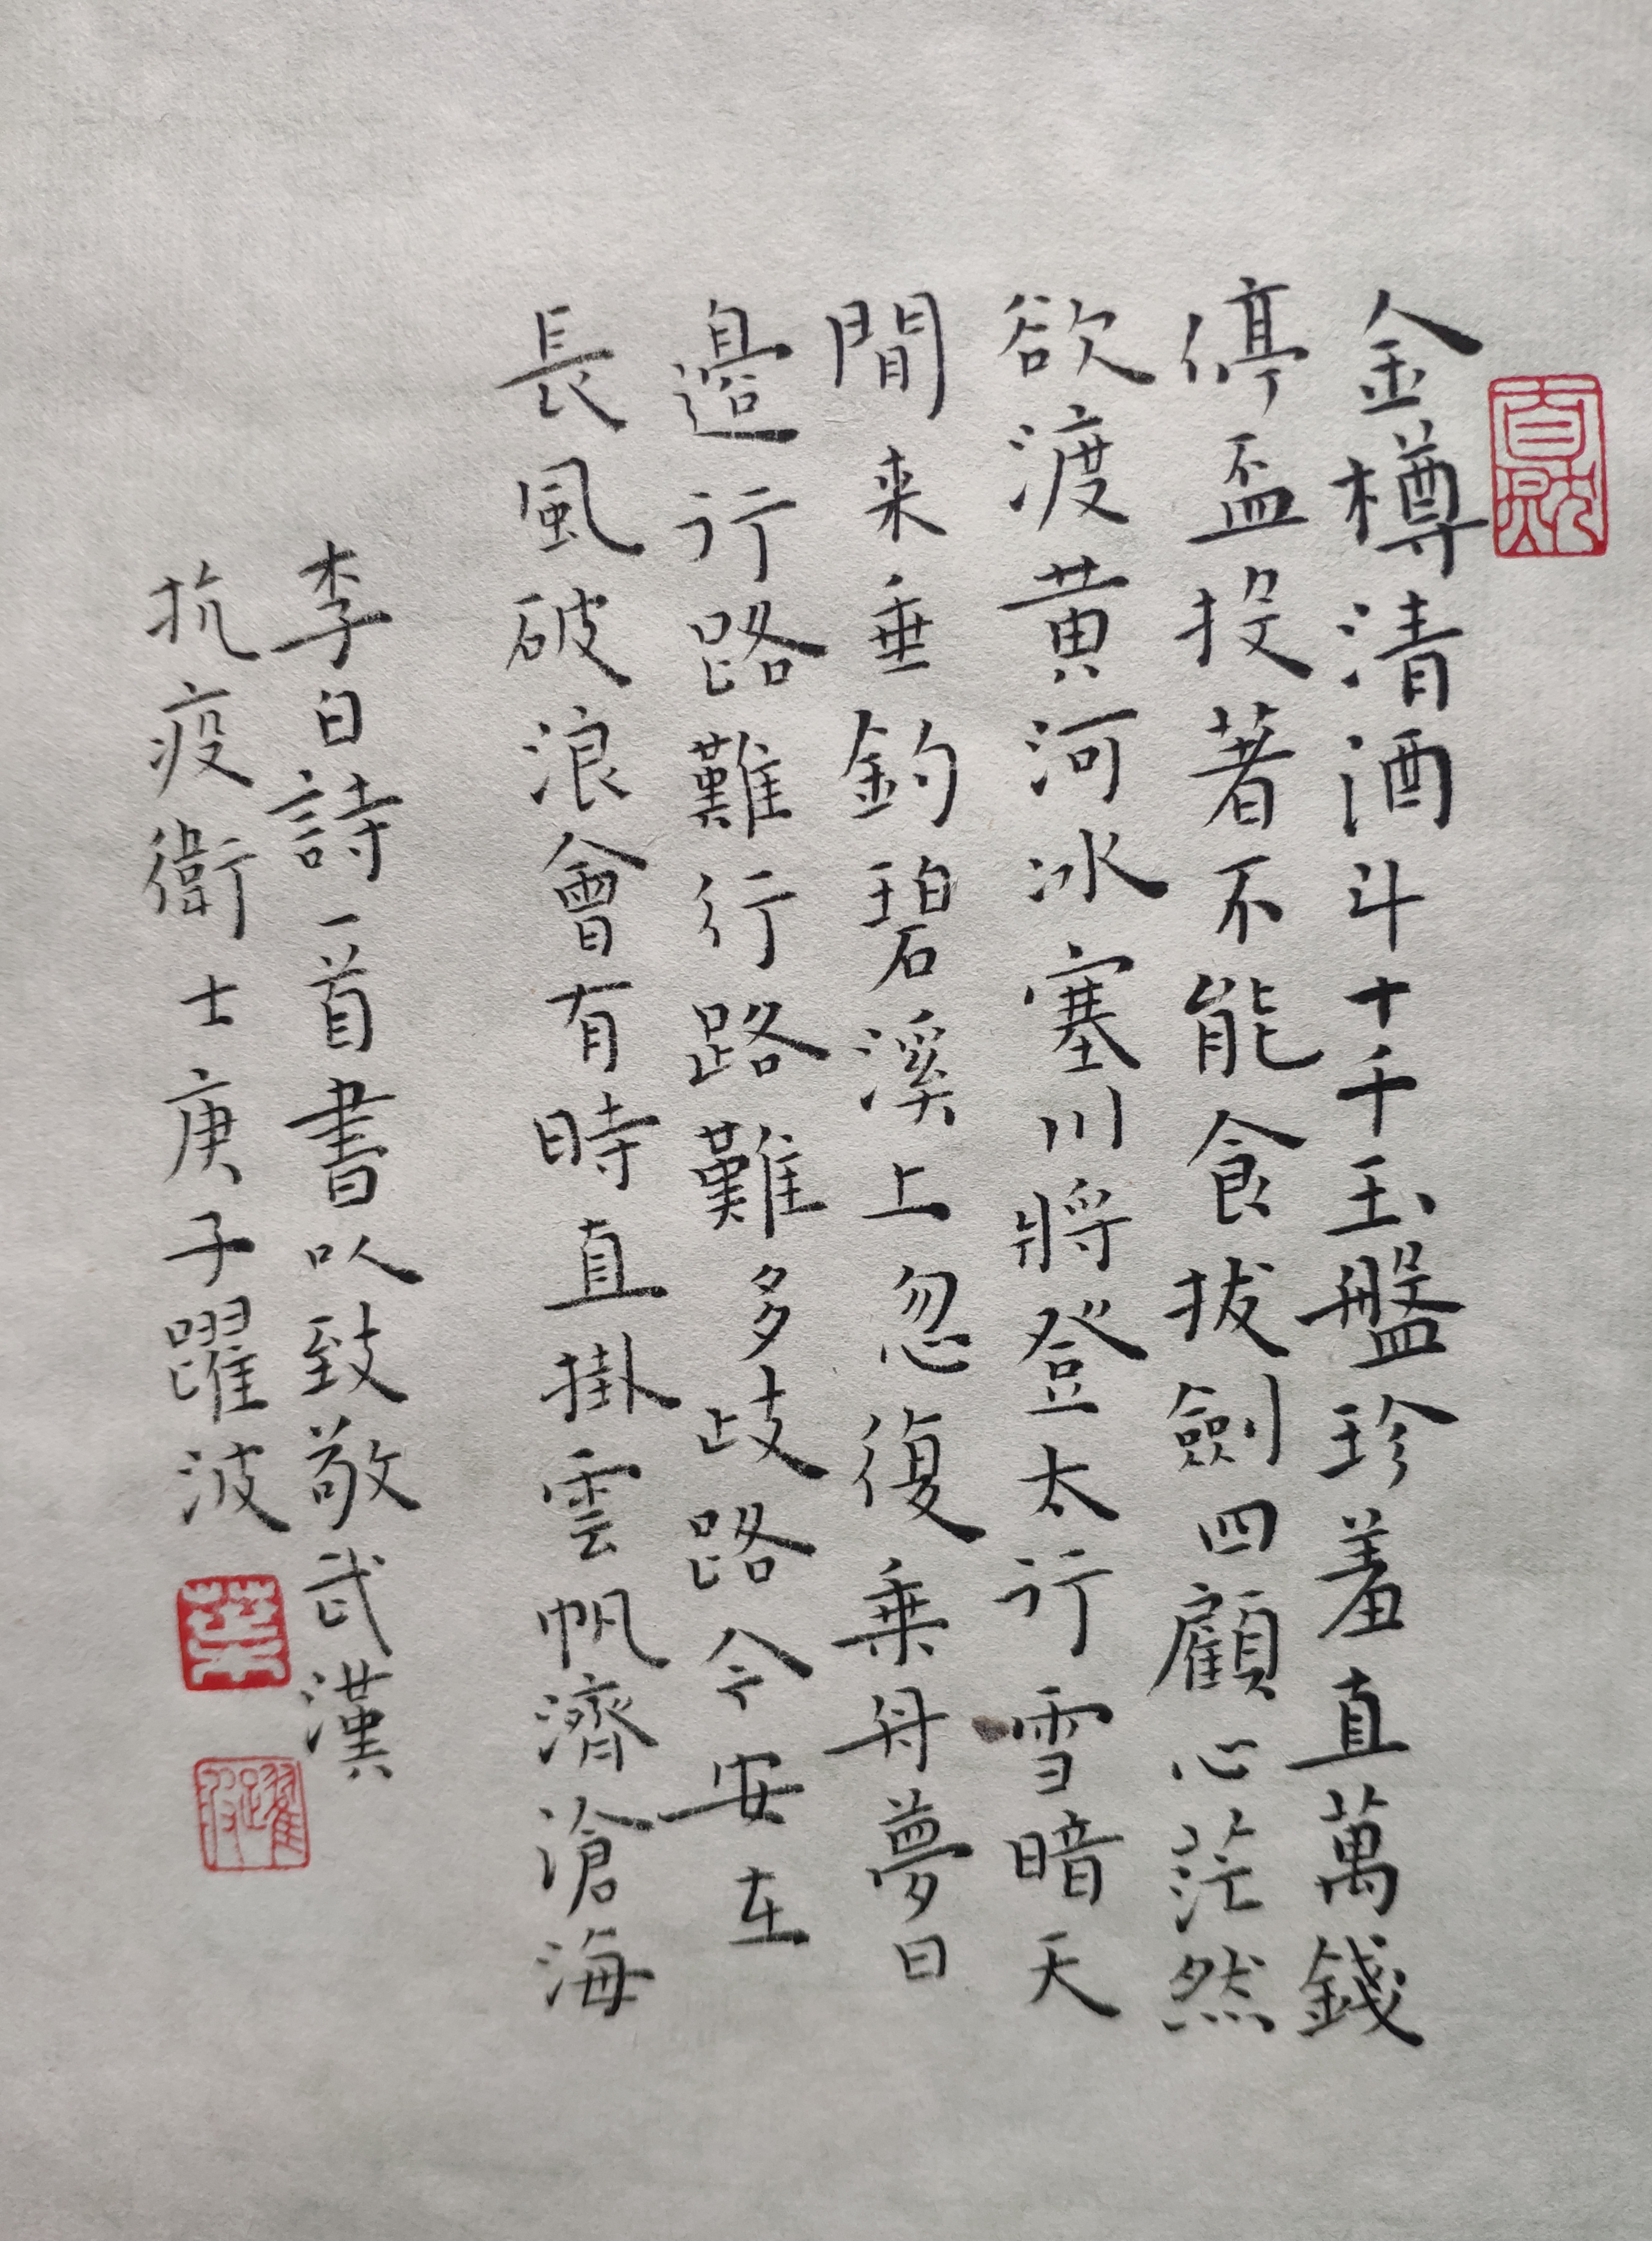 金樽清酒斗十千玉盤珍羞直萬錢
停盃投著不能食拔劍四顧心茫然
欲渡黄河冰塞川將登太行雪暗天
閒来垂釣碧溪上忽復乗舟夢日
邊行路難行路難多歧路今安在
長風破浪會有時直掛雲帆濟滄海
李白詩一首書以致敬武漢
抗疫衛士庚子躍波